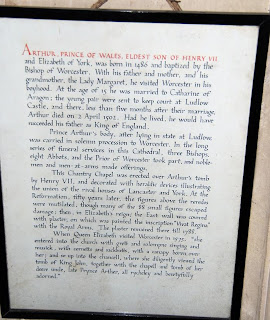 ARTHUR, PRINCE OF WALES, ELDEST SON OF HENRY VII
and Elizabeth of York, was born in 1486 and baptized by the
Bishop of Worcester. With his father and mother, and his
grandmother, the Lady Margaret, he visited Worcester in his
boyhood. At the age of 15 he was married to Catharine of
Aragon; the young pair were sent to keep court at Ludlow
Castle, and there, less than five months after their marriage,
Arthur died on 2 April 1502. Had he lived, he would have
succeeded his father as King of England.
Prince Arthur's body, after lying in state at Ludlow,
was carried in solemn procession to Worcester. In the long
series of funeral services in this Cathedral, three Bishops,
eight Abbots, and the Prior of Worcester took part, and noble-
men and men-at-arms made offerings.
This Chantry Chapel was erected over Arthur's tomb
by Henry VII, and decorated with heraldic devices illustrating
the union of the rival houses of Lancaster and York. At the
Reformation, fifty years later, the figures above the reredos
were mutilated, though many of the 88 small figures escaped
damage; then, in Elizabeth's reign, the East wall was covered
with plaster, on which was painted the inscription "Vivat Regina"
with the Royal Arms. The plaster remained there till 1788.
When Queen Elizabeth visited Worcester in 1575, "she
entered into the church with great and solempne singing and
musick, with cornetts and sackbutts, with a canopy borne over
her; and so up into the chauncell, where she diligently viewed the
tomb of King John, together with the chapell and tomb of her
deere uncle, late Prynce Arthur, all rychely and beautyfully
adorned."